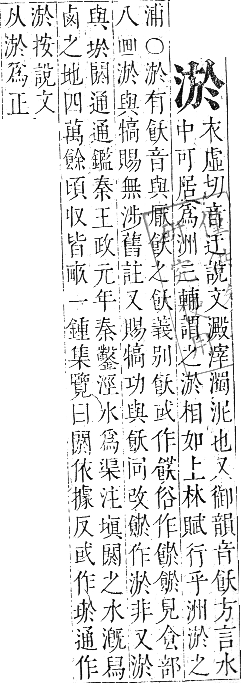 淤
衣虛切音迂說文澱滓濁泥也又御韻音飫方言水
中可居爲洲三輔謂之淤相如上林賦行乎洲淤之
浦〇淤有飫音與厭飫之飫義別飫或作俗作見食部
八畫淤與犒賜無涉舊註又賜犒功與飫同改作淤非又淤
與閼通通鑑秦王政元年秦鑿涇水爲渠注塡閼之水漑舄
鹵之地四萬餘頃収皆畝一鍾集覽曰閼依據反或作通作
淤按說文
从淤爲正